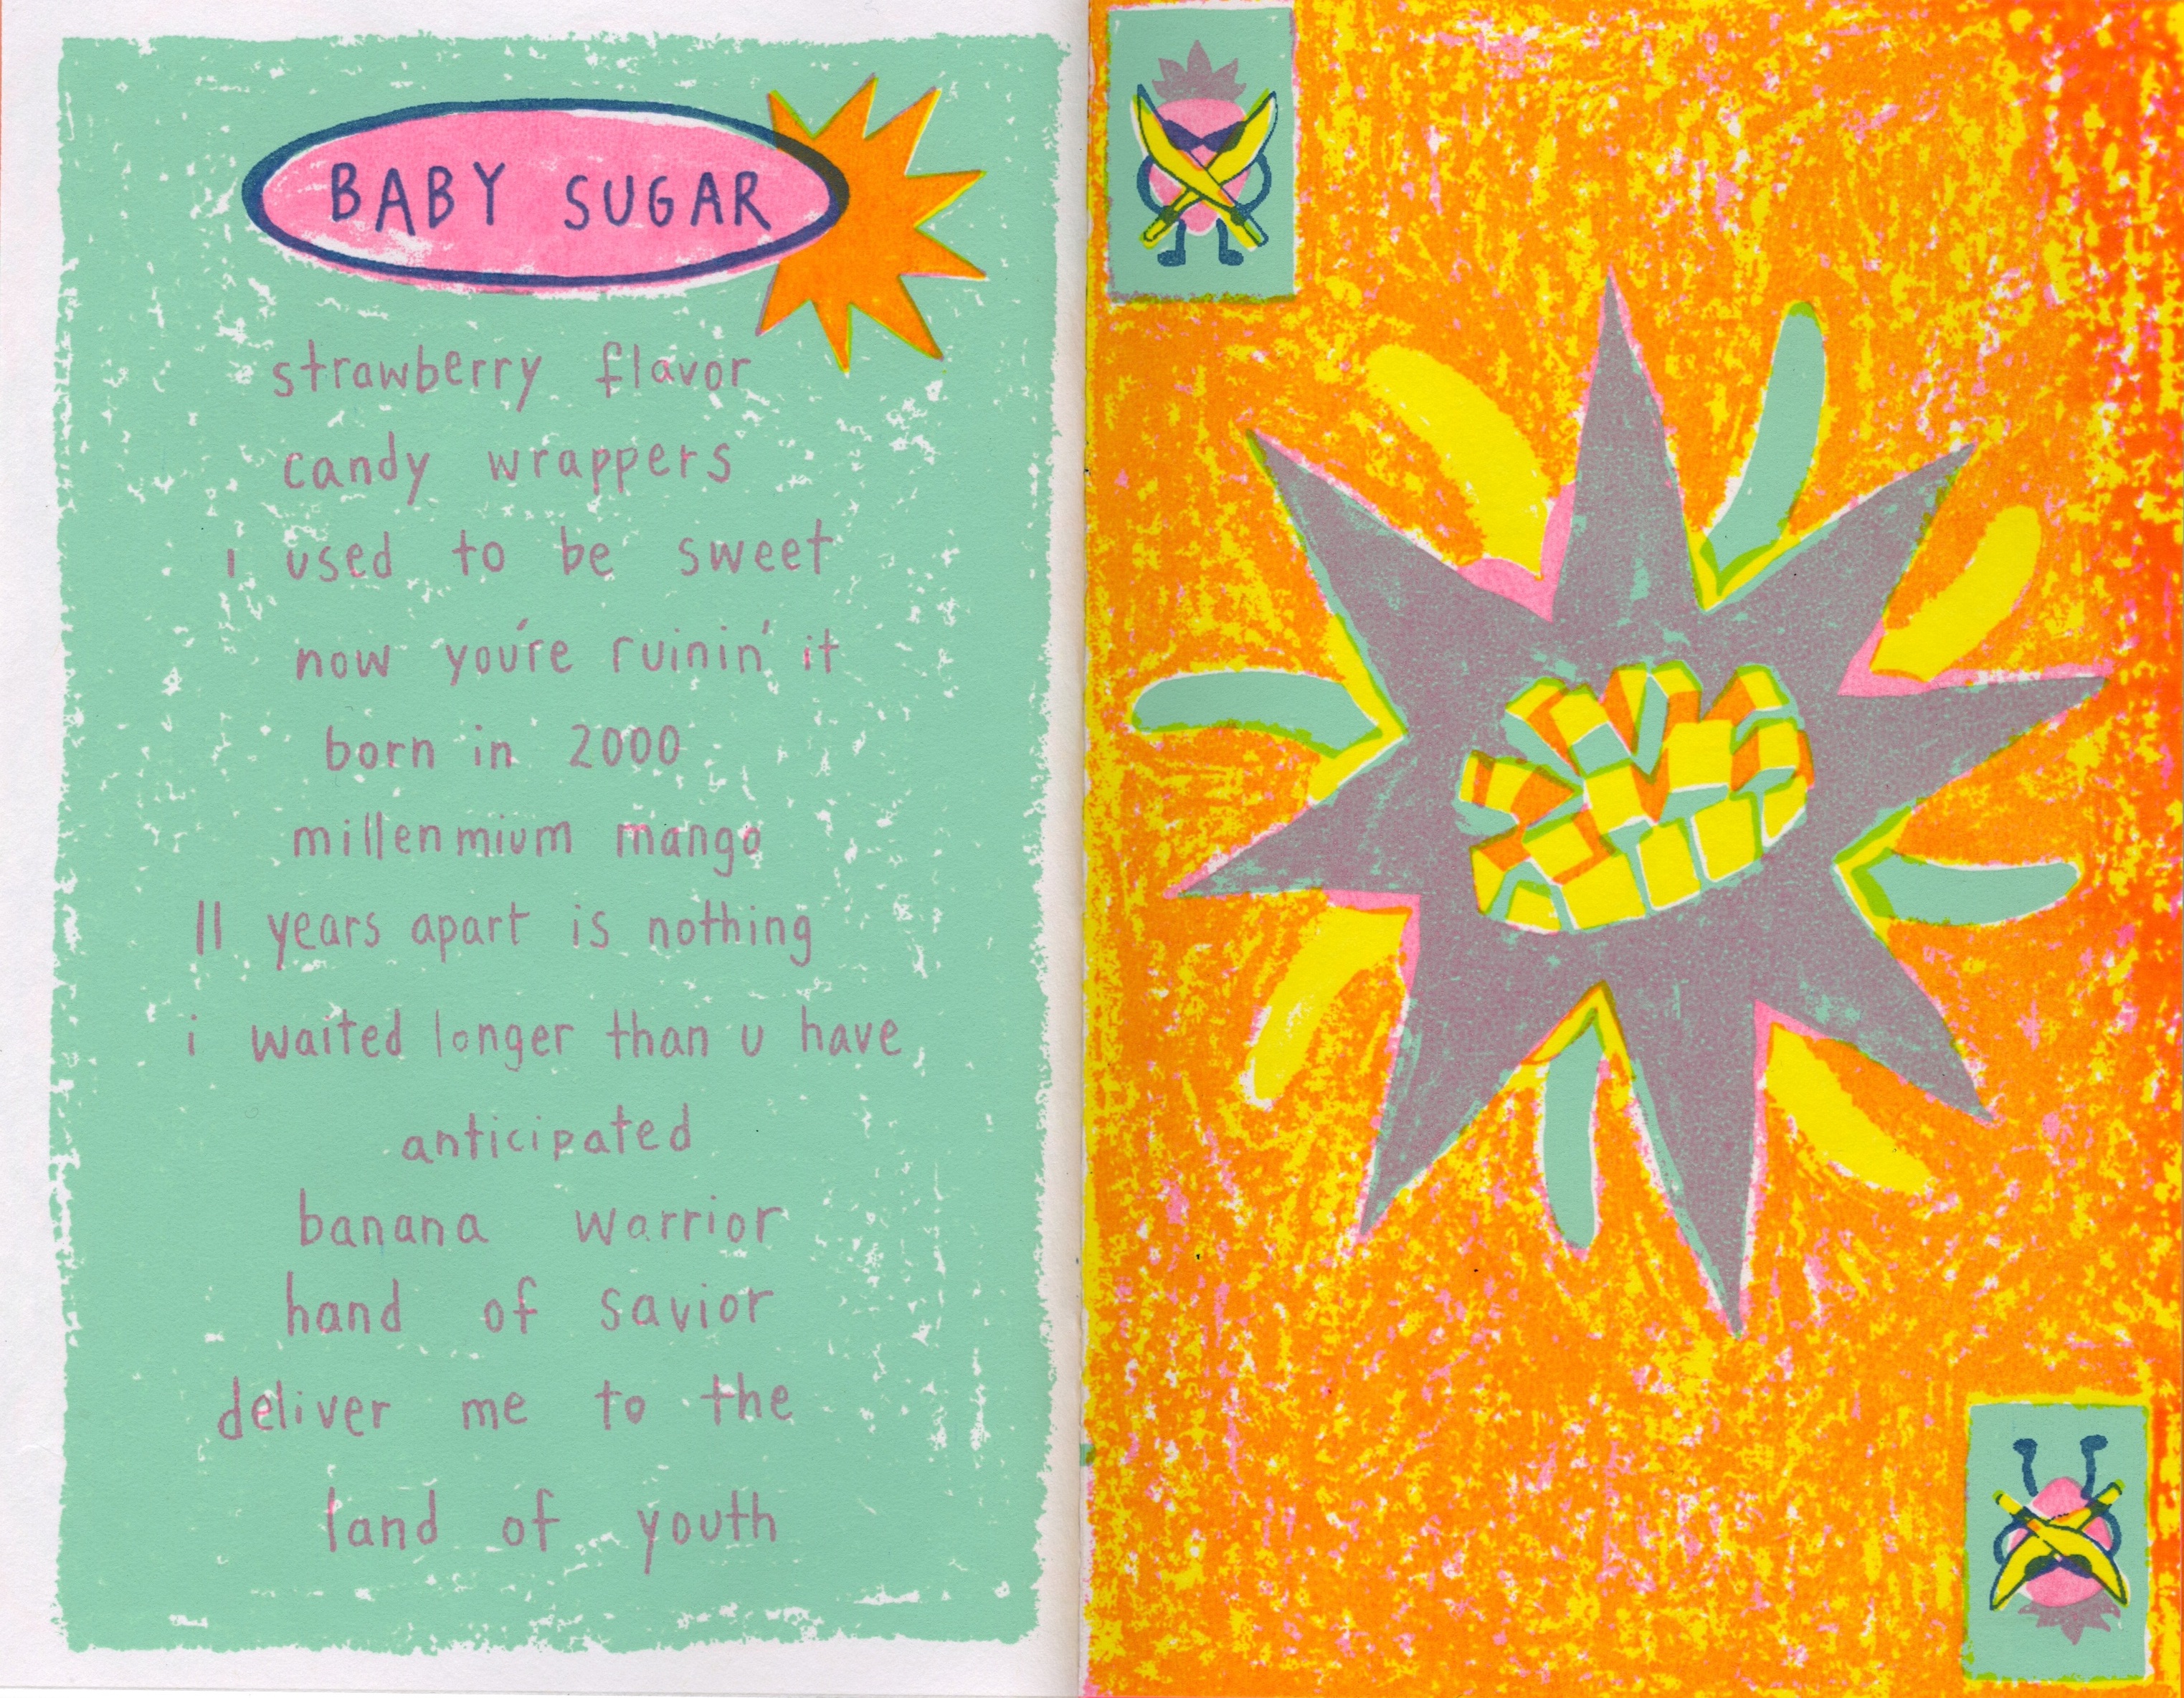 BABY SUGAR
strawberry flavor
candy wrappers
i used to be sweet
now you're ruinin' it
born in 2000
millenmium mango
11 years apart is nothing
i waited longer than u have
anticipated
banana warrior
hand of savior
deliver me to the
land of youth